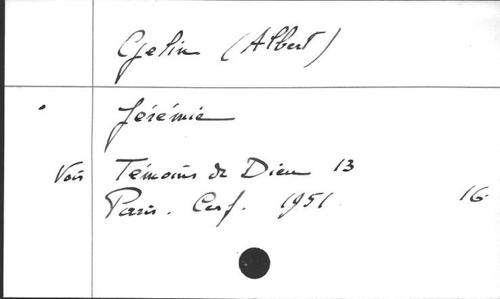 Gelin (Albert)
Jérémie
Voir Témoins de Dieu 13
Paris. Cerf. 1951. 16